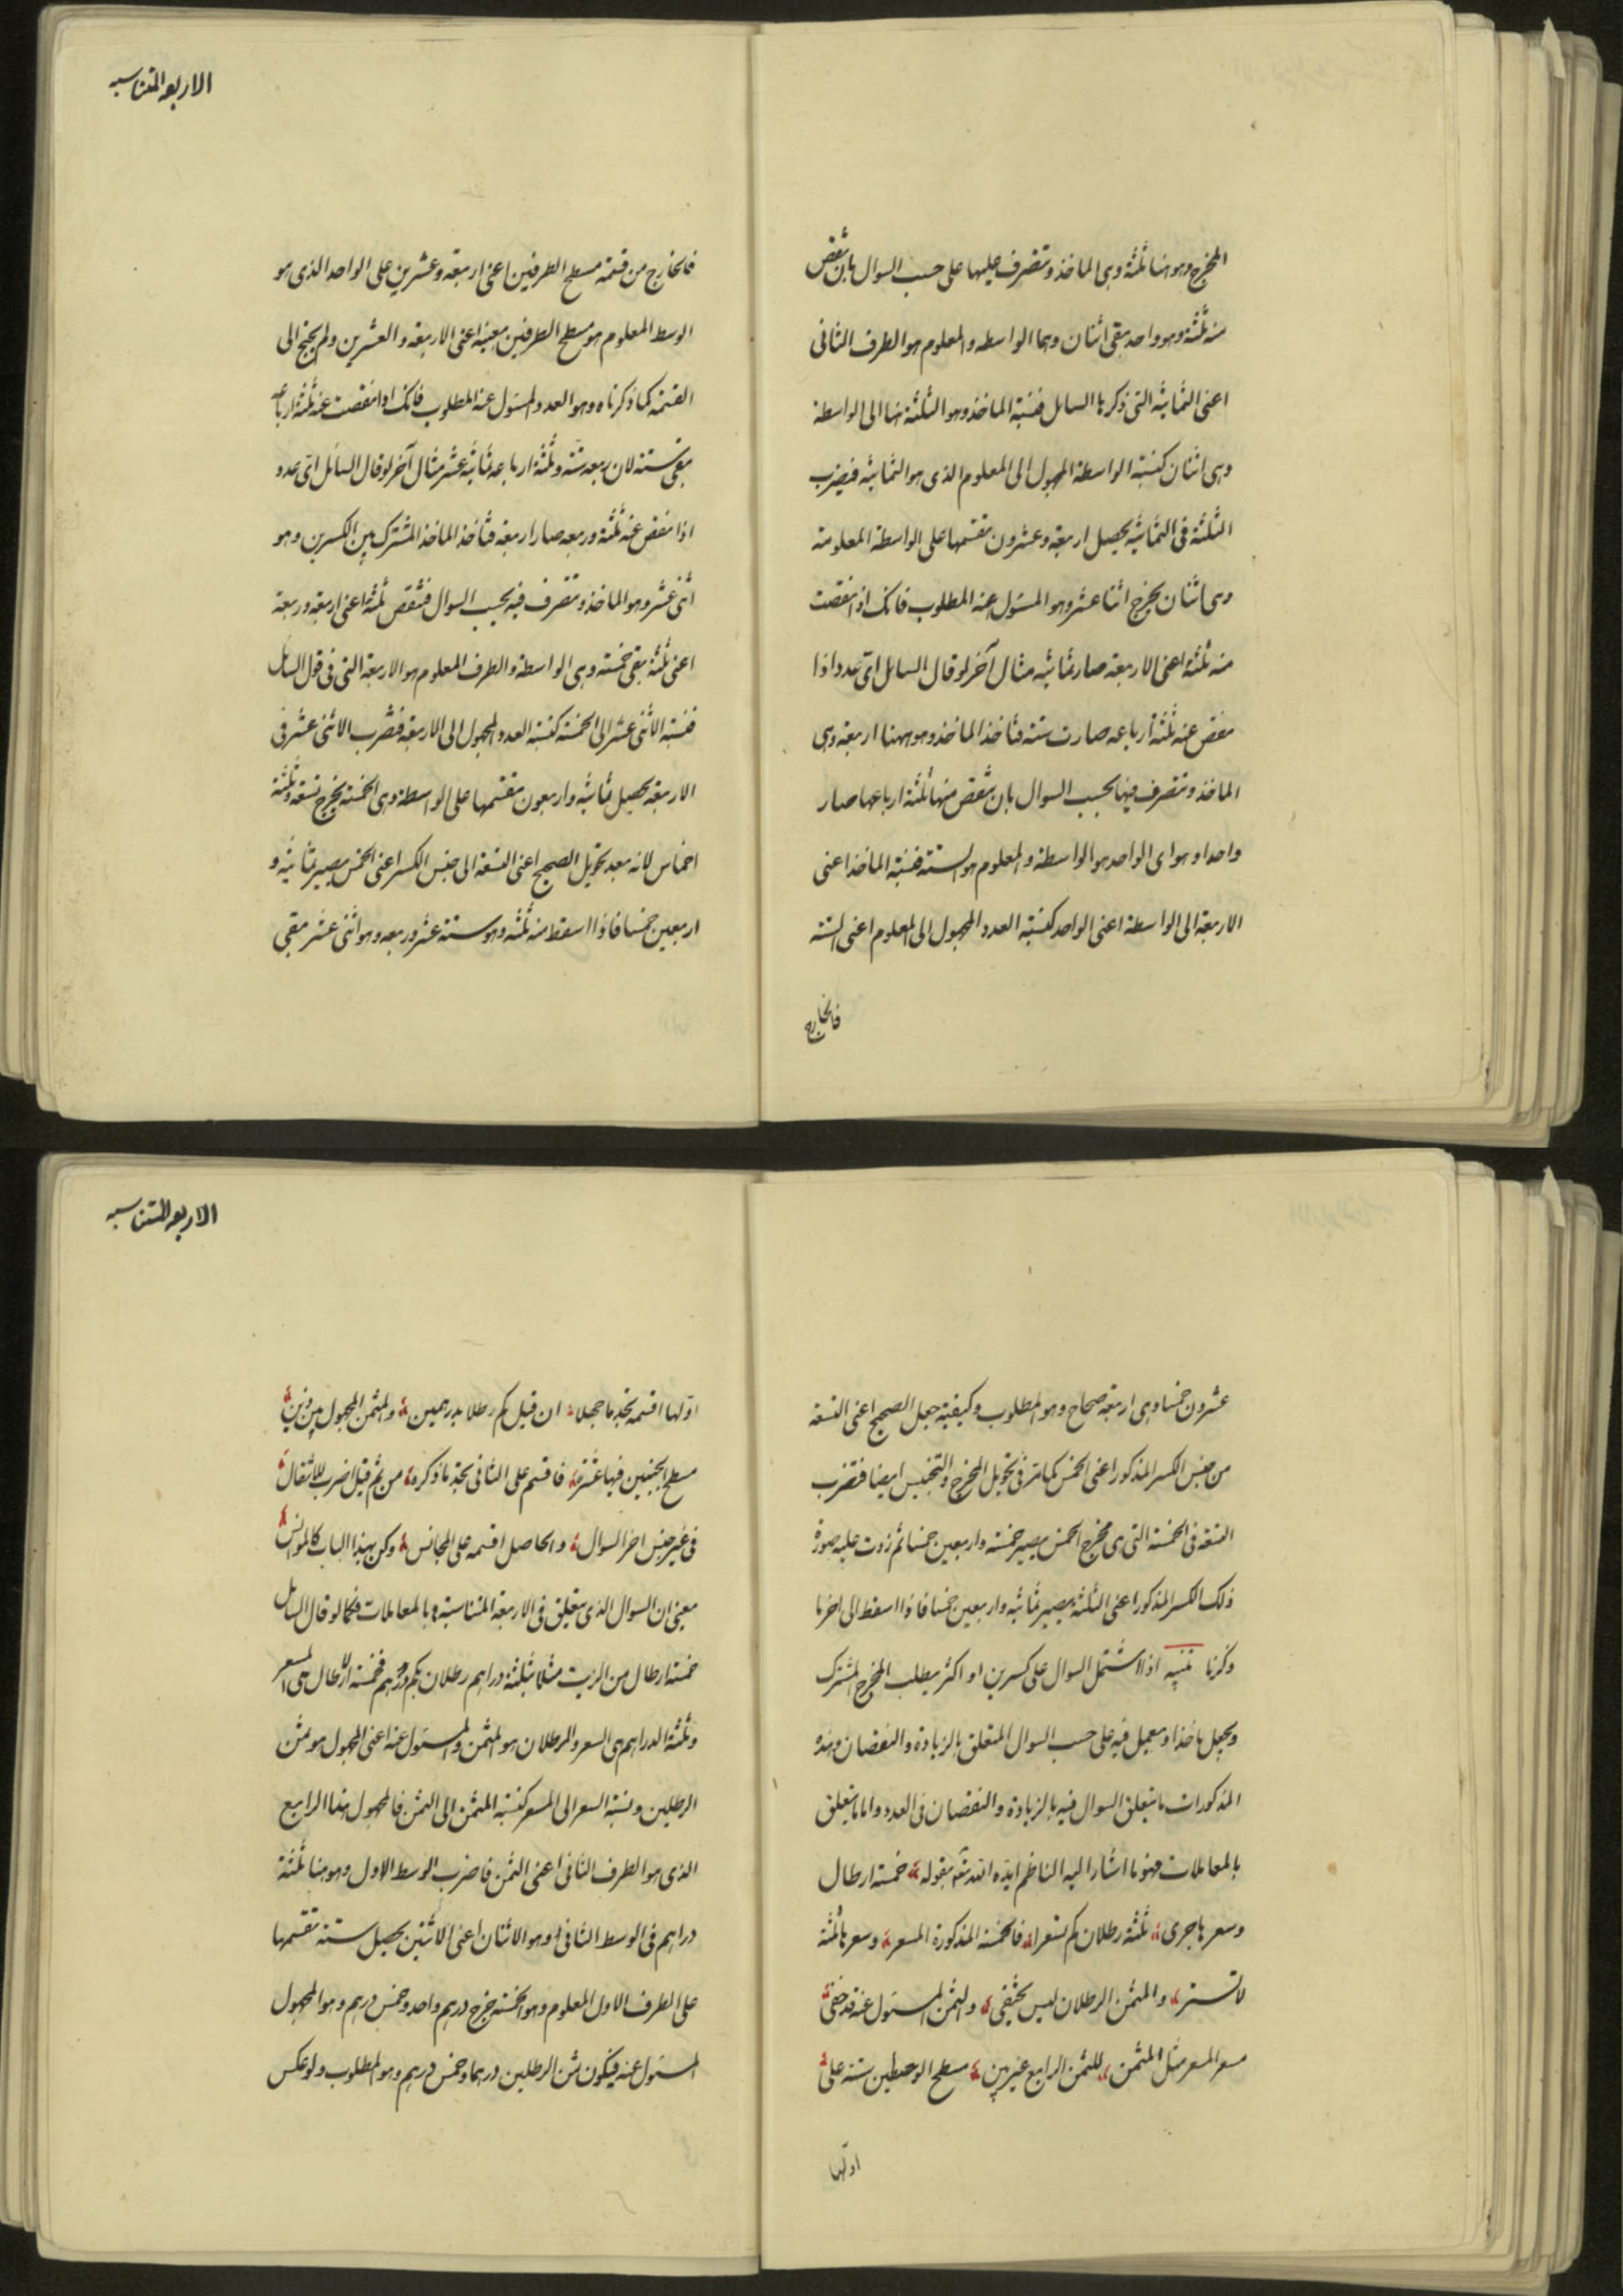 المخرج وهو هنا ثلثة وهى الماخذ وتتصرف عليها على حسب السوال بان تنقص
منه ثلثه وهو واحد يبقى اثنان وهما الواسطه والمعلوم هو الطرف الثانى
اعنى الثمانيه التى ذكرها السايل فنسبة الماخذ وهو الثلثة هنا الى الواسطة
وهى اثنان كنسبة الواسطة المجهول الى المعلوم الذى هو الثمانيه فيضرب
الثلثة فى الثمانيه يحصل اربعة وعشرون تقسمها على الواسطة المعلومة
وهى اثنان يخرج اثنا عشر وهو المسئول عنه المطلوب فانك اذا نقصت
منه ثلثه اعنى الاربعة صار ثمانيه مثال آخر لو قال السايل اىّ عدد اذا
نقص عنه ثلثة ارباعه صارت ستة فتأخذ الماخذ وهو ههنا اربعة وهى
الماخذ وتتصرف فيها بحسب السوال بان تنقص منها ثلثة ارباعها صار
واحدا وهو اى الواحد هو الواسطة والمعلوم هو الستة فنسبة الماخذ اعنى
الاربعة الى الواسطة اعنى الواحد كنسبة العدد المجهول الى المعلوم اعنى الستة
فالخارج
الاربعه المتناسبه
فالخارج من قسمة مسطح الطرفين اعنى اربعة وعشرين على الواحد الذى هو
الوسط المعلوم هو مسطح الطرفين بعينه اعنى الاربعة والعشرين ولم يحتج الى
القسمة كما ذكرناه وهو العدد المسئول عنه المطلوب فانك اذا نقصت عنه ثلثة ارباعه
بقى ستة لان ربعه ستة وثلثة ارباعه ثمانية عشر مثال آخر لو قال السائل اىّ عدد
اذا نقص عنه ثلثة وربعه صار اربعة فتأخذ الماخذ المشترك بين الكسرين وهو
اثنى عشر وهو الماخذ وتتصرف فيه بحسب السوال فتنقص ثلثه اعنى اربعة وربعة
اعنى ثلثة بقى خمسة وهى الواسطة والطرف المعلوم هو الاربعة التى فى قول السايل
فنسبة الاثنى عشر الى الخمسة كنسبة العدد المجهول الى الاربعة فتضرب الاثنى عشر فى
الاربعة يحصل ثمانية واربعون تقسمها على الواسطة وهى الخمسة يخرج تسعة وثلثة
اخماس لانه بعد تحويل الصحيح اعنى التسعة الى جنس الكسر اعنى الخمس يصير ثمانية و
اربعين خمسا فاذا اسقط منه ثلثه وهو ستة عشر وربعه وهو اثنى عشر بقى
عشرون خمسا وهى اربعة صحاح وهو المطلوب وكيفية جعل الصحيح اعنى التسعة
من جنس الكسر المذكور اعنى الخمس كما مر فى تحويل المخرج والتجنيس ايضا فتضرب
التسعة فى الخمسة التى هى مخرج الخمس يصير خمسة واربعين خمسا ثم زدت عليه صورة
ذلك الكسر المذكور اعنى الثلثة يصير ثمانيه واربعين خمسا فاذا اسقط الى اخر ما
ذكرنا تنبيه اذا اشتمل السوال على كسرين او اكثر يطلب المخرج المشترك
ويجعل ماخذا ويعمل فيه على حسب السوال المتعلق بالزيادة والنقصان وهذه
المذكورات ما يتعلق السوال فيه بالزيادة والنقصان فى العدد واما ما يتعلق
بالمعاملات فهو ما اشار اليه الناظم ايده الله بقوله خمسة ارطال
وسعرها جرى ثلثة رطلان كم تسعرا فالخمسة المذكورة المسعر وسعرها ثلثة
لا تستر والمثمن الرطلان ليس يختفى والثمن المسئول عنه قد خفى
سعر المسعر مثل المثمن للثمن الرابع غير بين مسطح الوسطين ستة على
اولها
الاربعه المتناسبه
اولها اقسمه تجد ما جهلا ان قيل كم رطلا بدرهمين والمثمن المجهول بين ذين
مسطح الجنبين فيها عشرة فاقسم على الثانى تجد ما ذكره من ثم قيل اضرب للاثقال
فى غير جنس اخر السوال والحاصل اقسمه على المجانس وكن بهذا الباب كالموانس
يعنى ان السوال الذى يتعلق فى الاربعة المتناسبة بالمعاملات فكما لو قال السايل
خمسة ارطال من الزيت مثلا بثلثة دراهم رطلان بكم درهم فخمسة الارطال هى المسعر
وثلثة الدراهم هى السعر والرطلان هو المثمن والمسئول عنه اعنى المجهول هو ثمن
الرطلين ونسبة السعر الى المسعر كنسبة المثمن الى الثمن فالمجهول هنا الرابع
الذى هو الطرف الثانى اعنى الثمن فاضرب الوسط الاول وهو هنا ثلثة
دراهم فى الوسط الثانى وهو الاثنان اعنى الاثنين يحصل ستة تقسمها
على الطرف الاول المعلوم وهو الخمسة خرج درهم واحد وخمس درهم وهو المجهول
المسئول عنه فيكون ثمن الرطلين درهما وخمس درهم وهو المطلوب ولو عكس